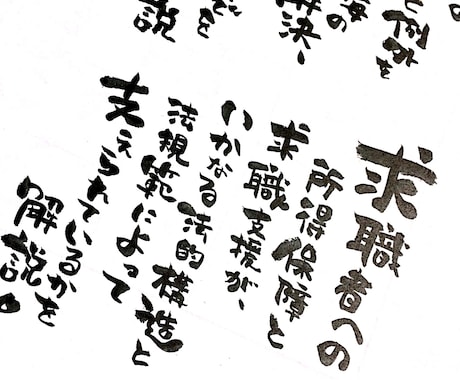 の
と例外を
の
解決、
を
説
求職者への
所得保障と
求職支援が、
いかなる法的構造と
法規範によって
支えられているかを
解説。